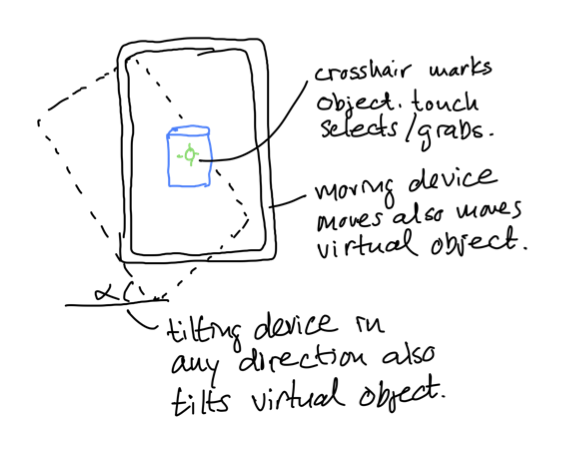 crosshair marks
object. touch
selects/grabs.
moving device
moves also moves
virtual object.
α
tilting device in
any direction also
tilts virtual object.